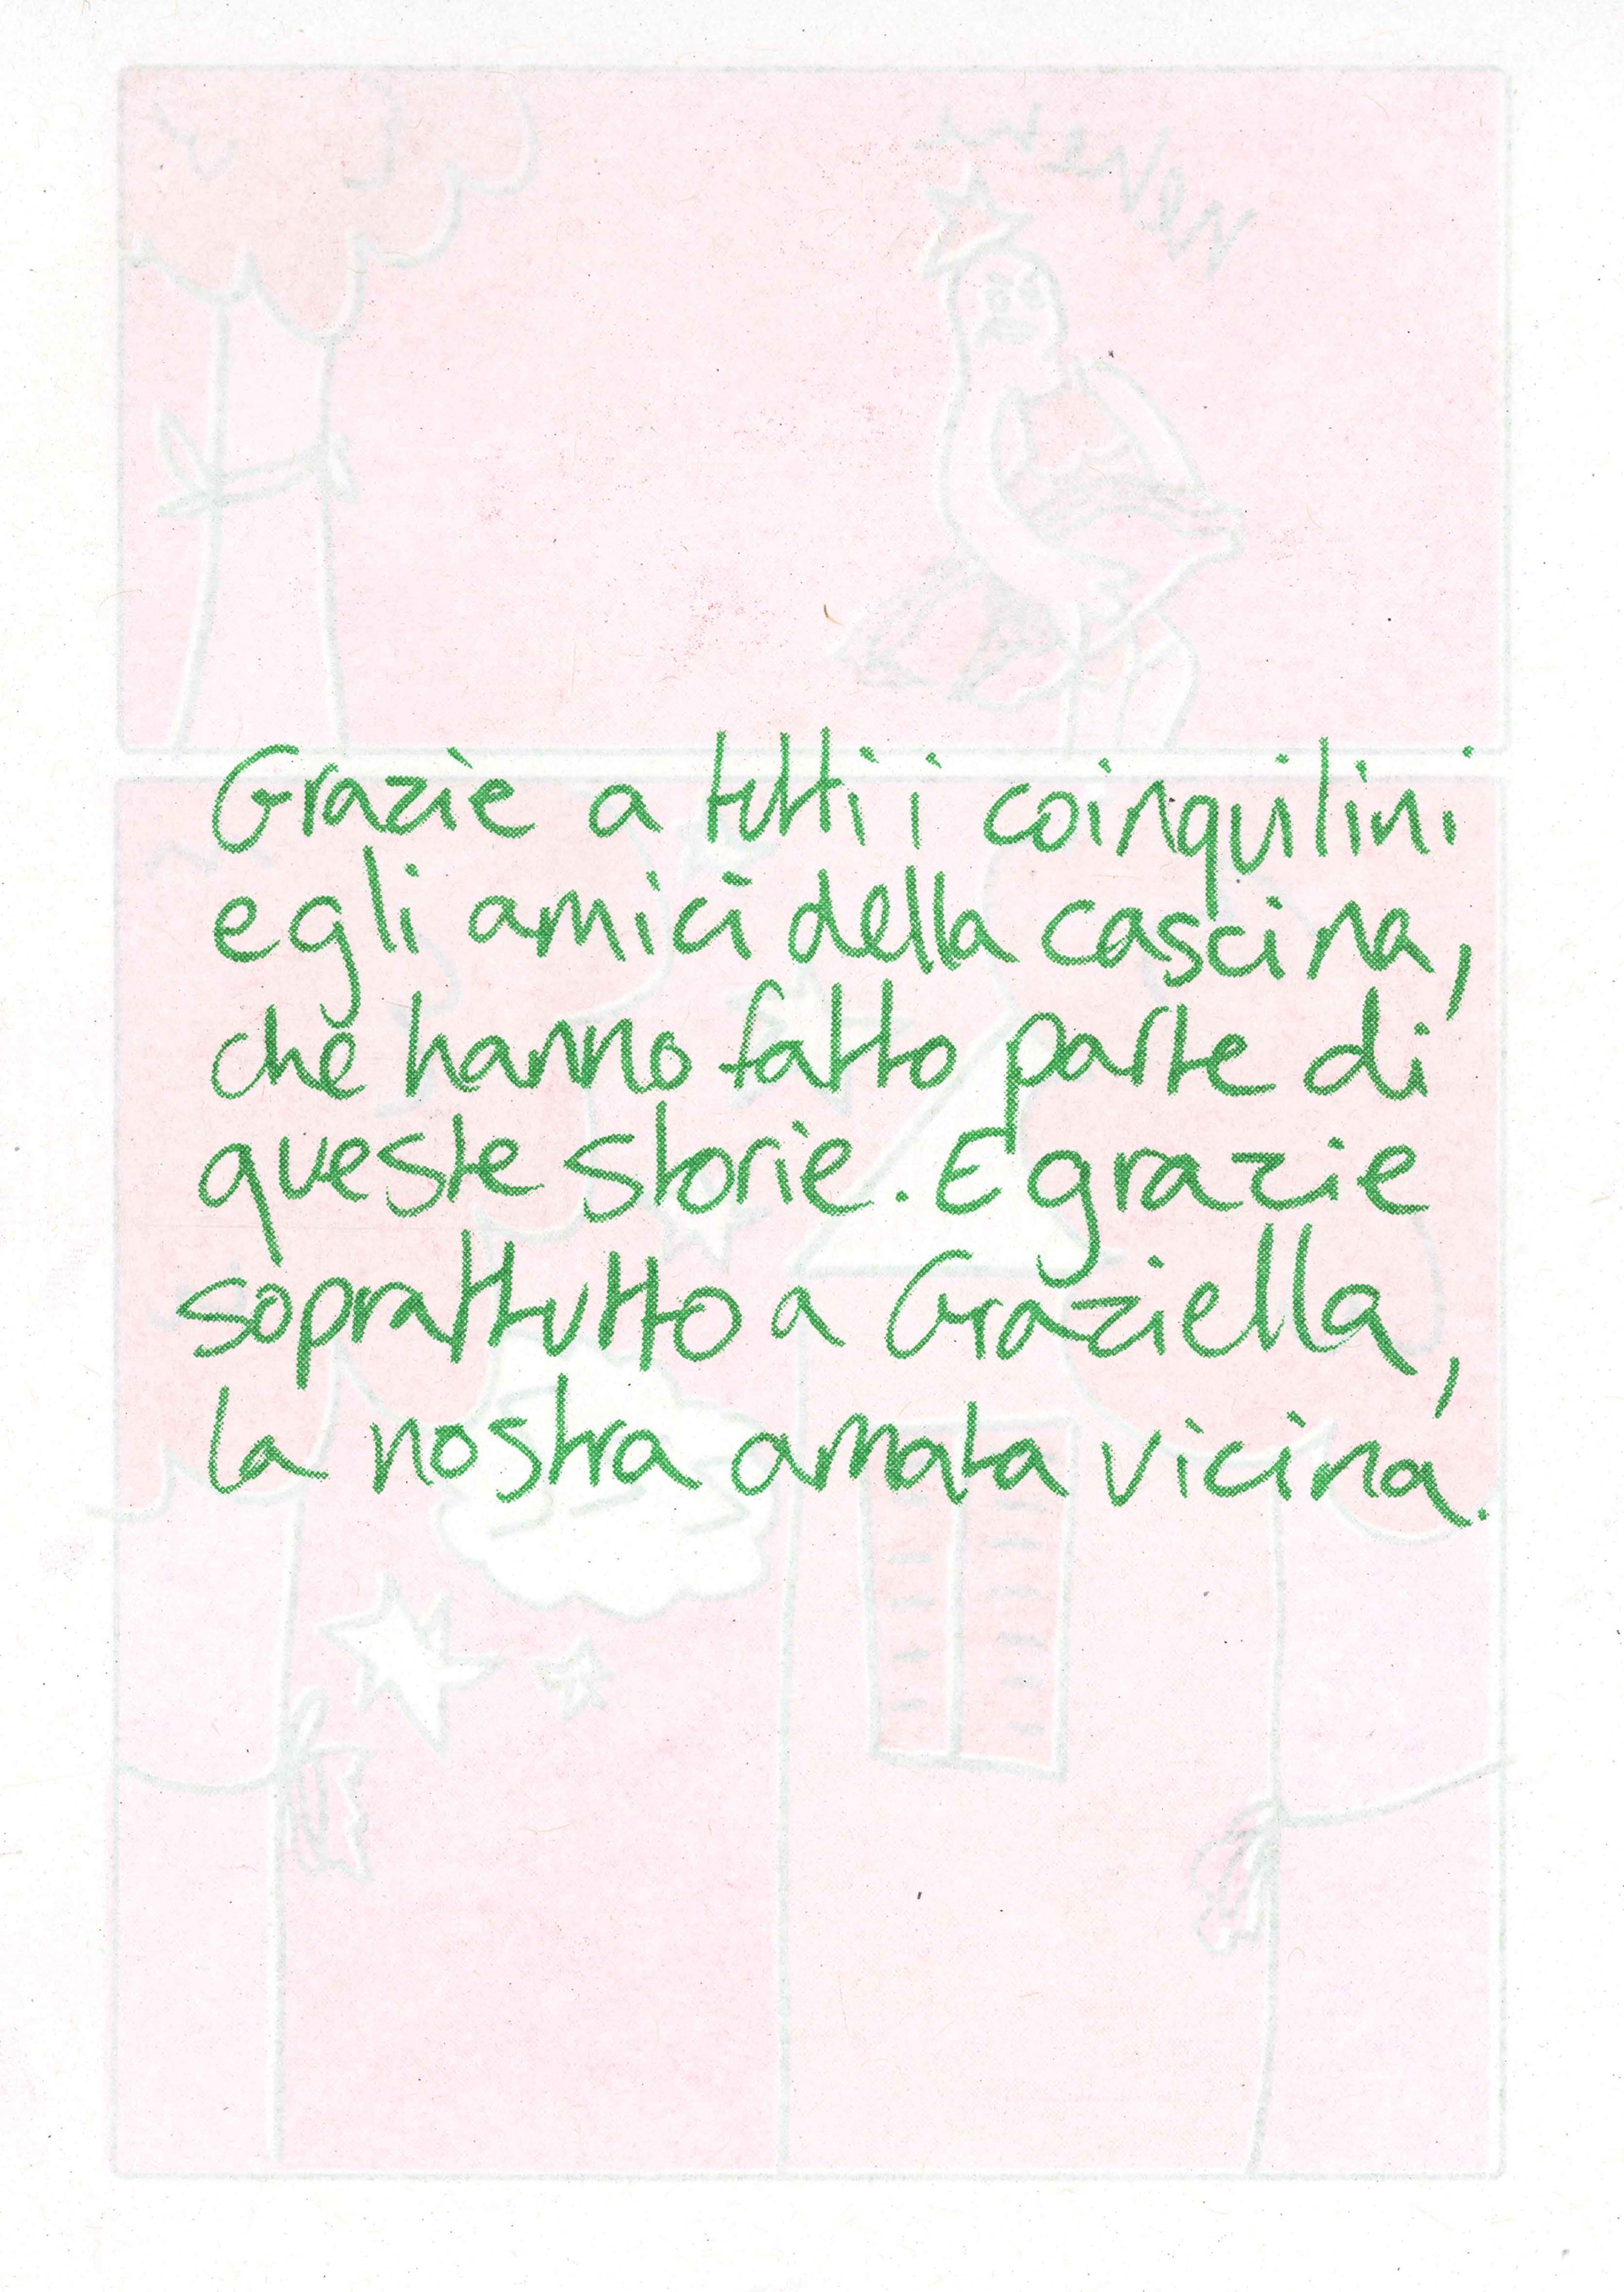 Grazie a tutti i coinquilini
e gli amici della cascina,
che hanno fatto parte di
queste storie. E grazie
soprattutto a Graziella,
la nostra amata vicina.